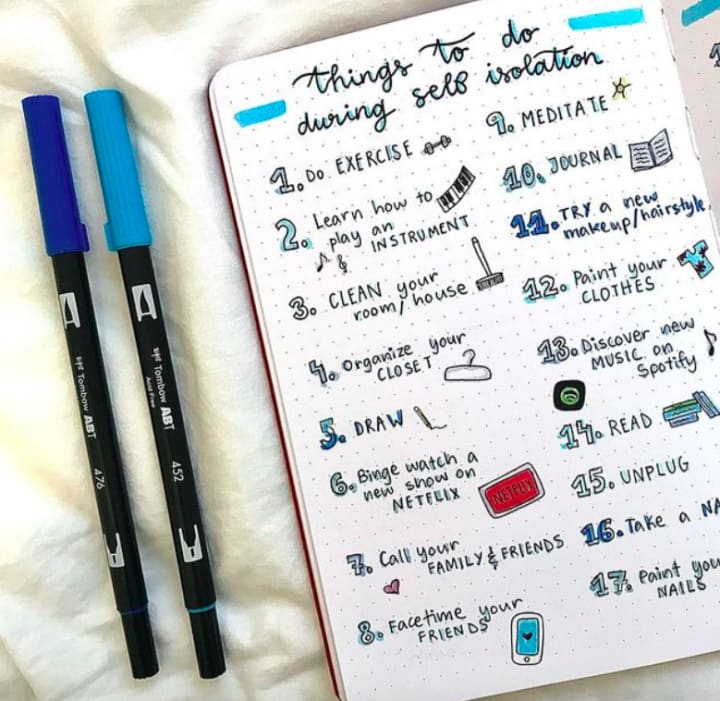 things to do
during self isolation
1. DO EXERCISE
2. Learn how to
play an
INSTRUMENT
3. CLEAN your
room/house
4. Organize your
CLOSET
5. DRAW
6. Binge watch a
new show on
NETFLIX
NETFLIX
7. Call your
FAMILY & FRIENDS
8. Facetime your
FRIENDS
9. MEDITATE
10. JOURNAL
11. TRY a new
makeup/hairstyle
12. Paint your
CLOTHES
13. Discover new
MUSIC on
Spotify
14. READ
15. UNPLUG
16. Take a NA
17. Paint you
NAILS
Tombow ABT
476
Tombow ABT
Acid Free
452